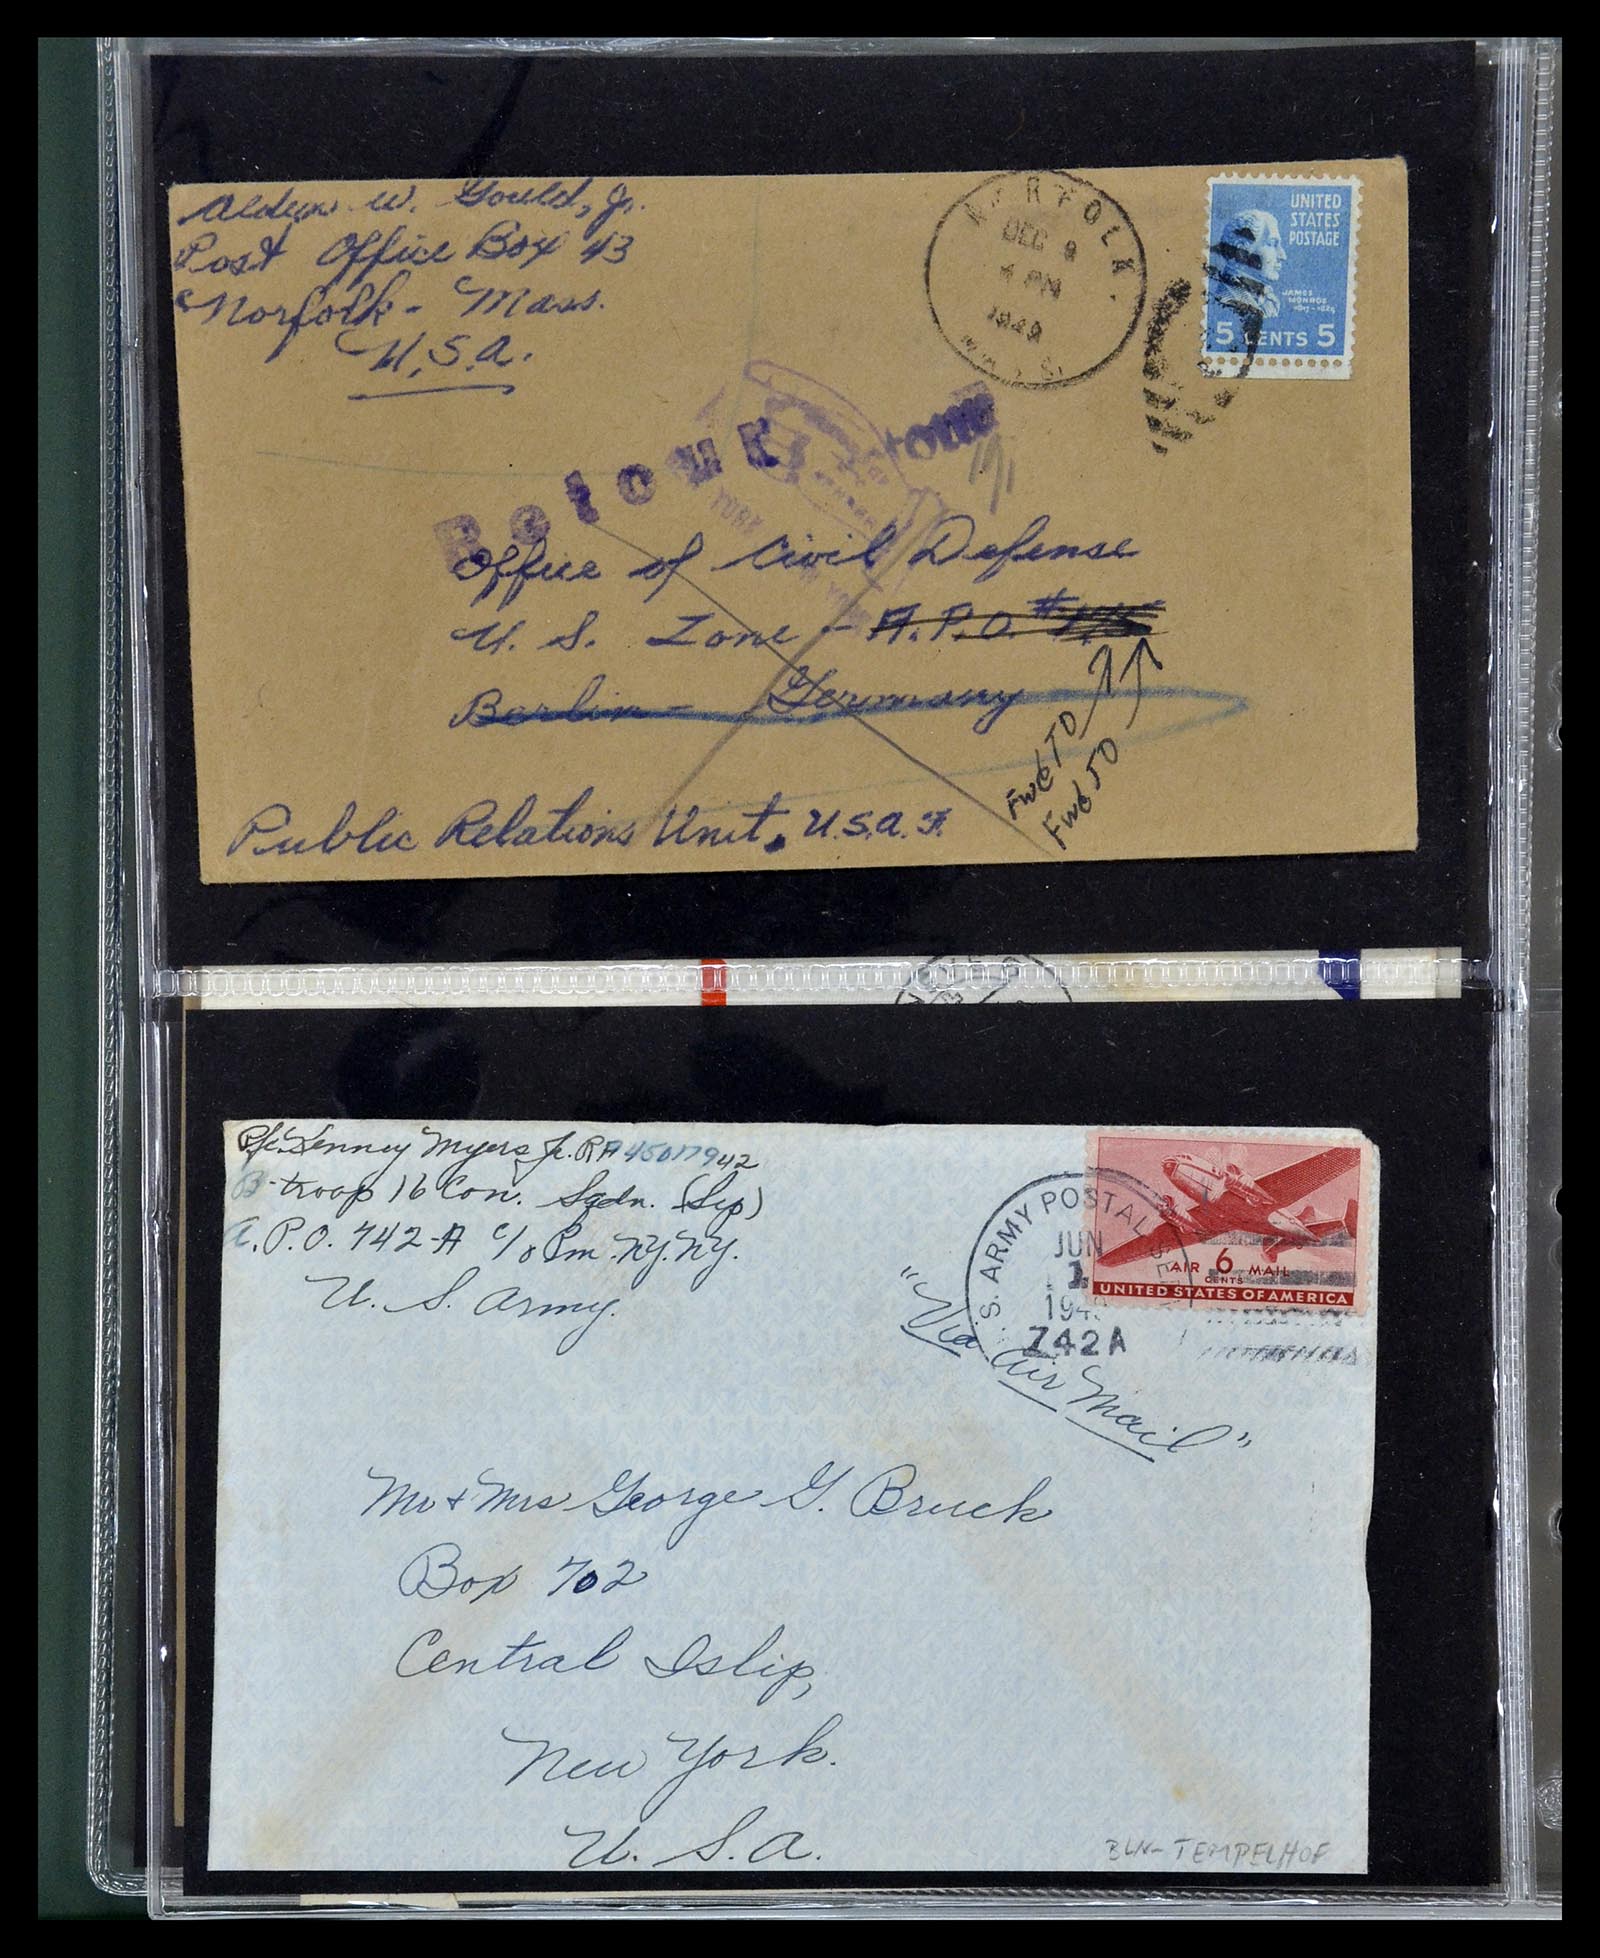 Alden W. Gould, Jr.
Post Office Box 43
Norfolk - Mass.
U.S.A.
NORFOLK
DEC 9
PM
1949
MASS.
UNITED
STATES
POSTAGE
JAMES
MONROE
1817-1825
5 CENTS 5
Retour
Office of Civil Defense
U. S. Zone - A.P.O. #
Berlin - Germany
Fwd TO
Fwd TO
Public Relations Unit, U.S.A.F.
Pfc. Lenney Myers Jr. RA 45017942
B-troop 16 Con. Sqdn. (Sep)
A.P.O. 742-A c/o Pm. N.Y. N.Y.
U. S. Army.
U.S. ARMY POSTAL SER
JUN
1
194
742A
AIR 6 MAIL
CENTS
UNITED STATES OF AMERICA
"Via Air Mail"
Mr + Mrs George G. Bruck
Box 702
Central Islip,
New York.
U. S. A.
BLN-TEMPELHOF